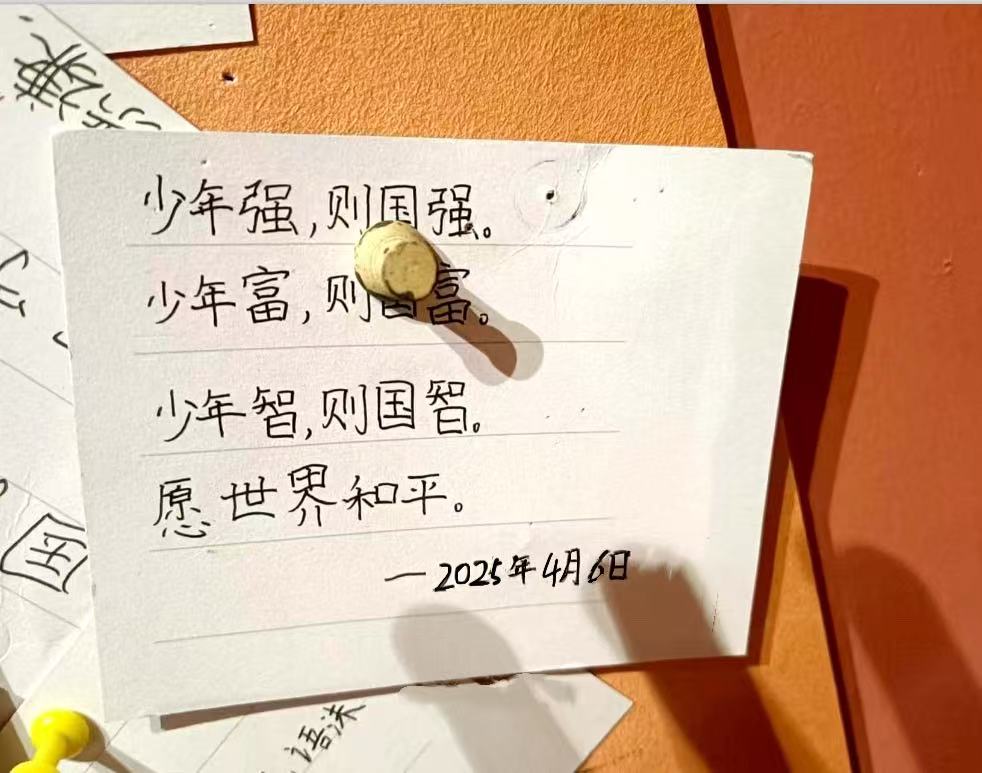 少年强,则国强。
少年富,则国富。
少年智,则国智。
愿世界和平。
一2025年4月6日
国
语沫